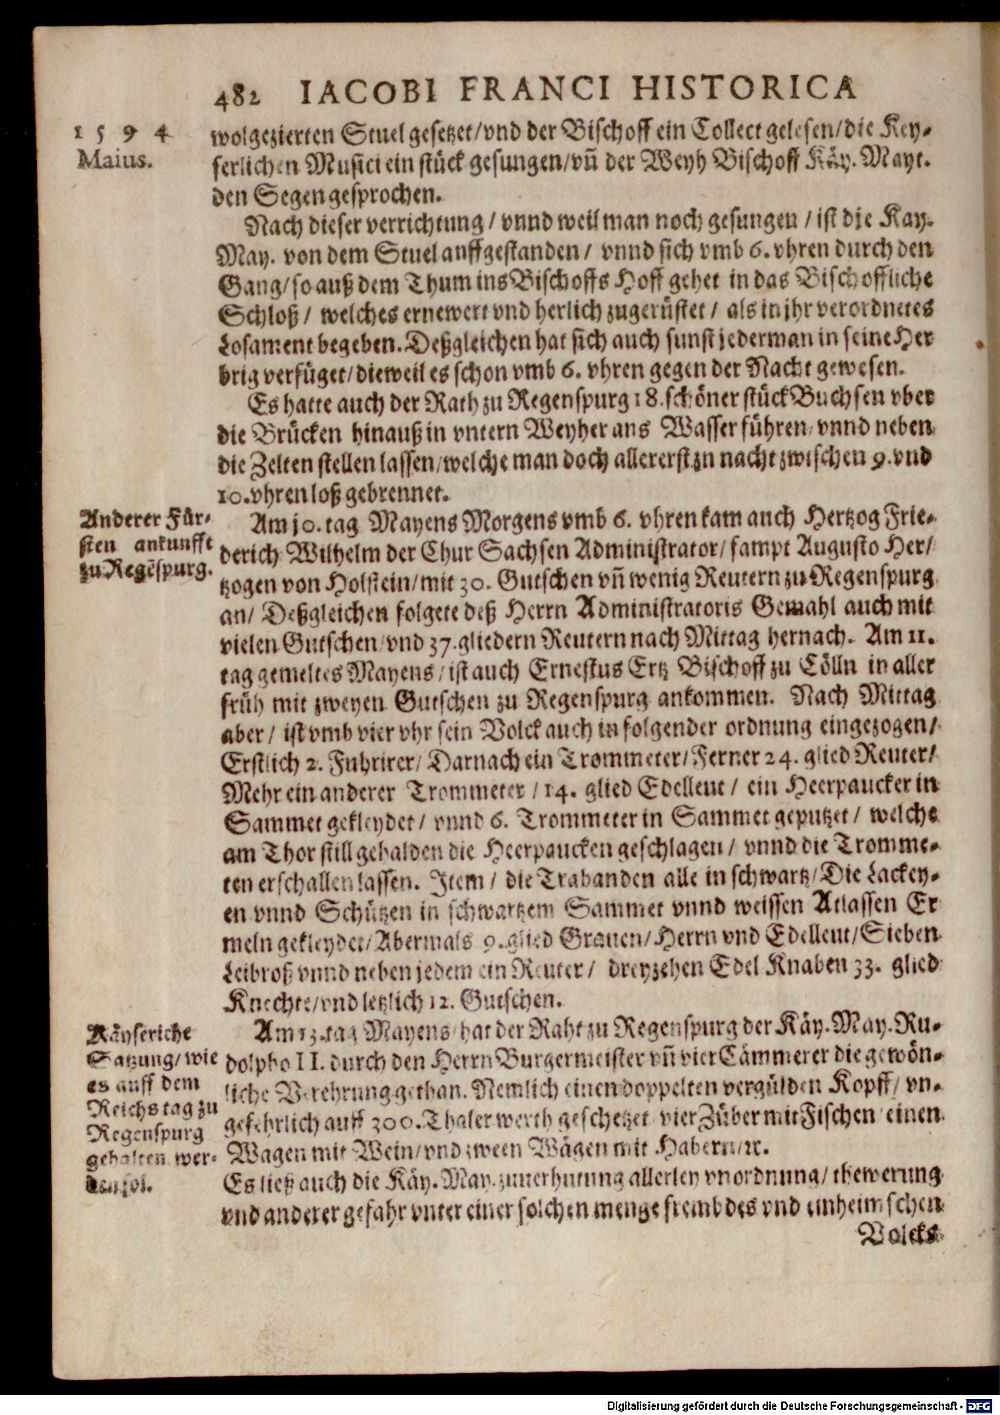 482 IACOBI FRANCI HISTORICA
1 5 9 4
Maius.
wolgezierten Stuel gesetzet/vnd der Bischoff ein Collect gelesen/die Key-
serlichen Musici ein stück gesungen/vñ der Weyh Bischoff Käy. Mayt.
den Segen gesprochen.
Nach dieser verrichtung / vnnd weil man noch gesungen / ist die Kay.
May. von dem Stuel auffgestanden / vnnd sich vmb 6. vhren durch den
Gang/so auß dem Thum ins Bischoffs Hoff gehet in das Bischoffliche
Schloß / welches ernewert vnd herlich zugerüstet / als in jhr verordnetes
Losament begeben. Deßgleichen hat sich auch sunst jederman in seine Her
brig verfüget/dieweil es schon vmb 6. vhren gegen der Nacht gewesen.
Es hatte auch der Rath zu Regenspurg 18. schöner stück Buchsen vber
die Brücken hinauß in vntern Weyher ans Wasser führen/vnnd neben
die Zelten stellen lassen/welche man doch allererst zu nacht zwischen 9. vnd
10. vhren loß gebrennet.
Anderer Für-
sten ankunfft
zu Regẽspurg.
Am 10. tag Mayens Morgens vmb 6. vhren kam auch Hertzog Frie-
derich Wilhelm der Chur Sachsen Administrator/ sampt Augusto Her/
tzogen von Holstein/mit 30. Gutschen vñ wenig Reutern zu Regenspurg
an/ Deßgleichen folgete deß Herrn Administratoris Gemahl auch mit
vielen Gutschen/vnd 37. gliedern Reutern nach Mittag hernach. Am 11.
tag gemeltes Mayens/ist auch Ernestus Ertz Bischoff zu Cölln in aller
früh mit zweyen Gutschen zu Regenspurg ankommen. Nach Mittag
aber / ist vmb vier vhr sein Volck auch in folgender ordnung eingezogen/
Erstlich 2. Fuhrirer/ Darnach ein Trommeter/Ferner 24. glied Reuter/
Mehr ein anderer Trommeter /14. glied Edelleut / ein Heerpaucker in
Sammet gekleydet / vnnd 6. Trommeter in Sammet geputzet / welche
am Thor still gehalden die Heerpaucken geschlagen / vnnd die Tromme-
ten erschallen lassen. Item / die Trabanden alle in schwartz/Die Lackey-
en vnnd Schützen in schwartzem Sammet vnnd weissen Atlassen Er
meln gekleydet/Abermals 9. glied Grauen/Herrn vnd Edelleut/Sieben
Leibroß vnnd neben jedem ein Reuter / dreyzehen Edel Knaben 33. glied
Knechte/vnd letzlich 12. Gutschen.
Käyseriche
Satzung/wie
es auff dem
Reichstag zu
Regenspurg
gehalten wer-
den sol.
Am 13. tag Mayens/hat der Raht zu Regenspurg der Käy. May. Ru-
dolpho II. durch den Herrn Burgermeister vñ vier Cämmerer die gewön-
liche Verehrung gethan. Nemlich einen doppelten vergülden Kopff / vn-
gefehrlich auff 300. Thaler werth geschetzet vier Züber mit Fischen einen
Wagen mit Wein/vnd zween Wägen mit Habern/ꝛc.
Es ließ auch die Käy. May. zuuerhutung allerley vnordnung/ thewerung
vnd anderer gefahr vnter einer solchen menge frembdes vnd einheimschen
Volcks
Digitalisierung gefördert durch die Deutsche Forschungsgemeinschaft - DFG